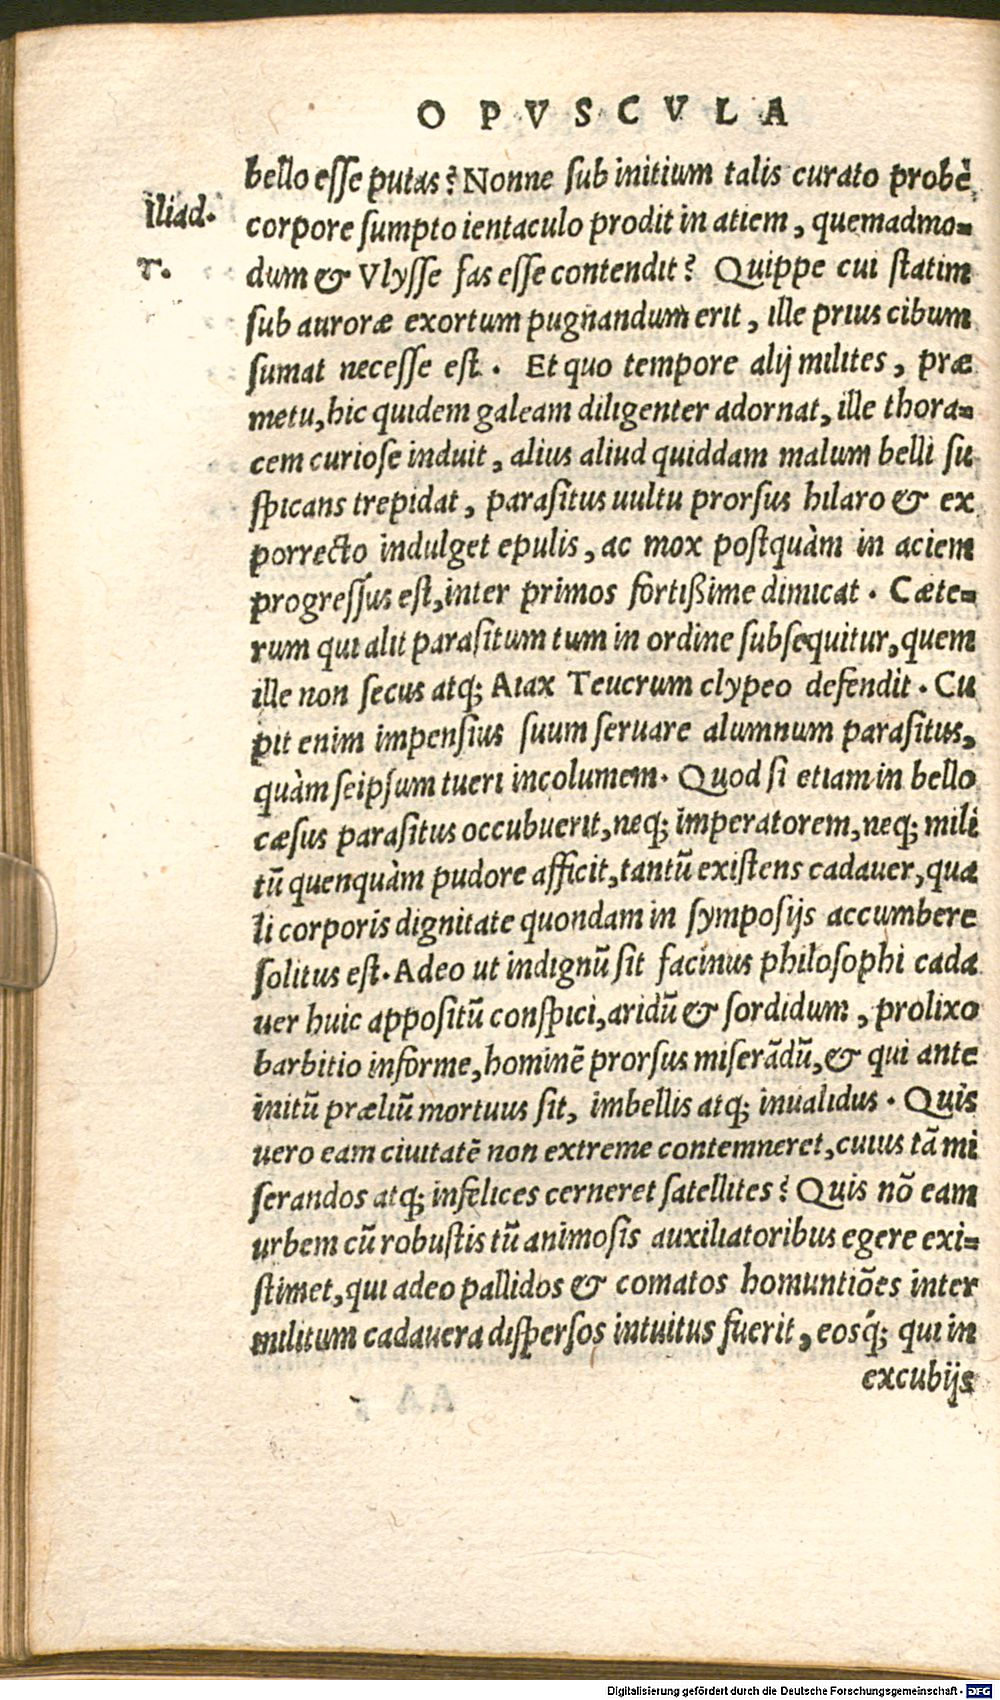 OPVSCVLA
bello esse putas? Nonne sub initium talis curato probè
Iliad.
corpore sumpto ientaculo prodit in atiem, quemadmo=
τ.
dum & Vlysse fas esse contendit? Quippe cui statim
sub auroræ exortum pugnandum erit, ille prius cibum
sumat necesse est. Et quo tempore alij milites, præ
metu, hic quidem galeam diligenter adornat, ille thora=
cem curiose induit, alius aliud quiddam malum belli su
spicans trepidat, parasitus uultu prorsus hilaro & ex
porrecto indulget epulis, ac mox postquàm in aciem
progressus est, inter primos fortißime dimicat. Cæte=
rum qui alit parasitum tum in ordine subsequitur, quem
ille non secus atq; Aiax Teucrum clypeo defendit. Cu
pit enim impensius suum seruare alumnum parasitus,
quàm seipsum tueri incolumem. Quod si etiam in bello
cæsus parasitus occubuerit, neq; imperatorem, neq; mili
tũ quenquàm pudore afficit, tantũ existens cadauer, qua
li corporis dignitate quondam in symposijs accumbere
solitus est. Adeo ut indignũ sit facinus philosophi cada
uer huic appositũ conspici, aridũ & sordidum, prolixo
barbitio informe, hominẽ prorsus miserãdũ, & qui ante
initũ præliũ mortuus sit, imbellis atq; inualidus. Quis
uero eam ciuitatẽ non extreme contemneret, cuius tã mi
serandos atq; infelices cerneret satellites? Quis nõ eam
urbem cũ robustis tũ animosis auxiliatoribus egere exi=
stimet, qui adeo pallidos & comatos homuntiões inter
militum cadauera dispersos intuitus fuerit, eosq́; qui in
excubijs
Digitalisierung gefördert durch die Deutsche Forschungsgemeinschaft - DFG